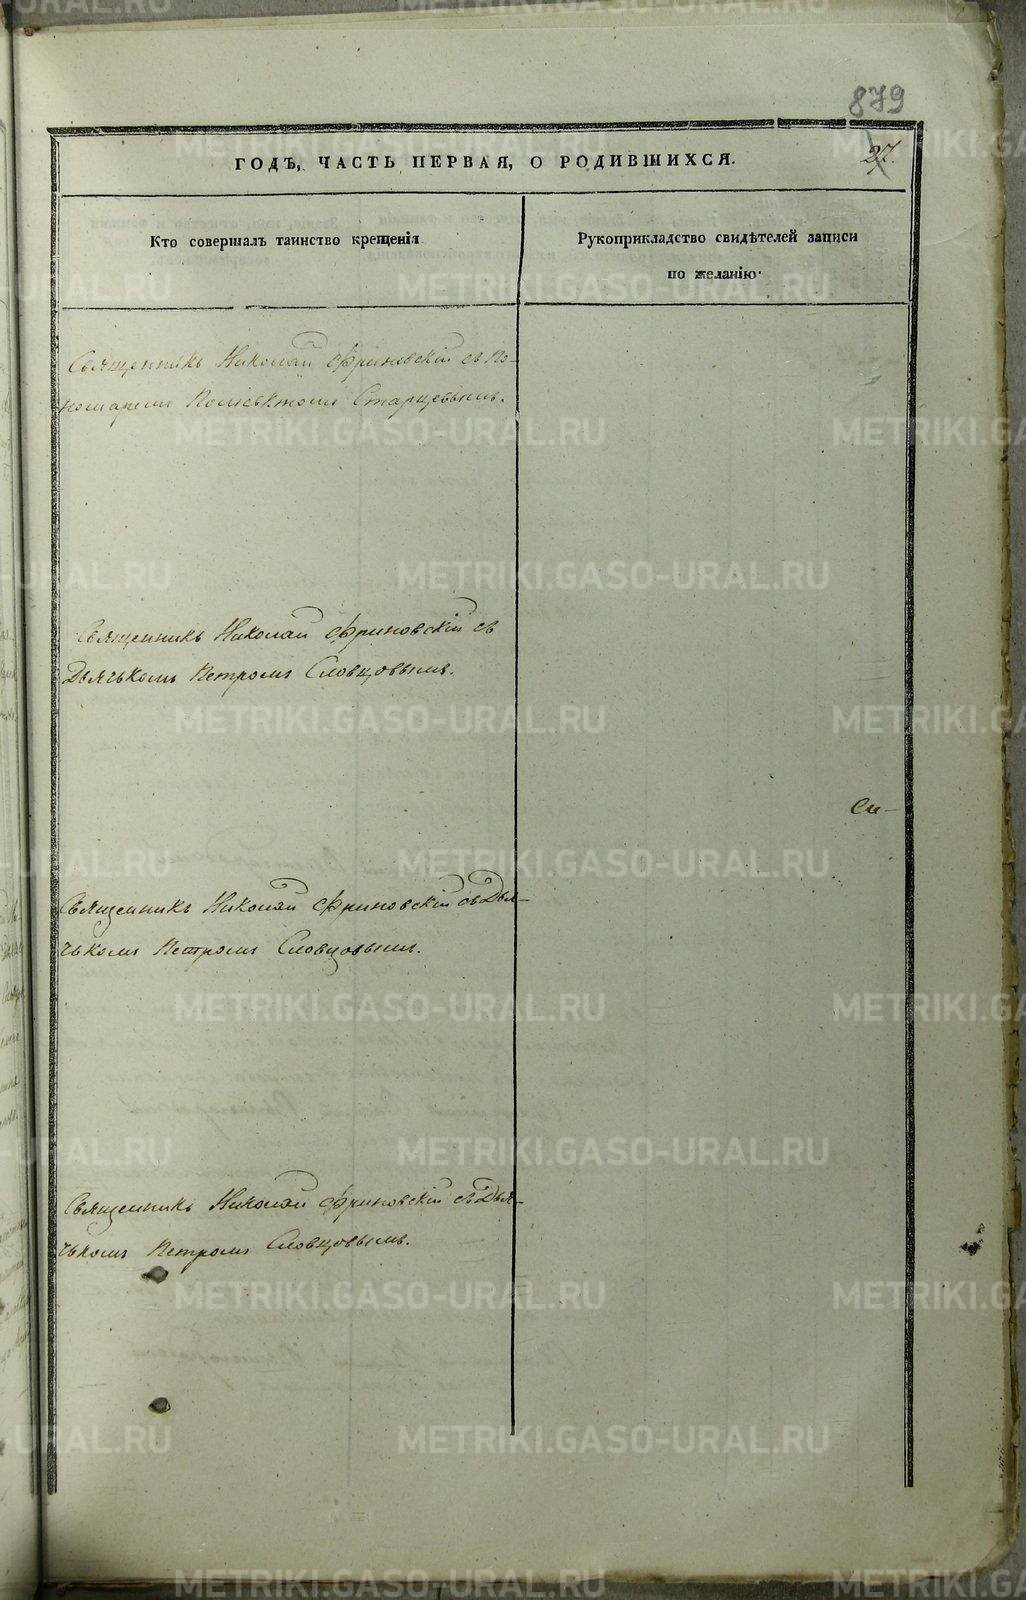 879
27.
ГОДЪ, ЧАСТЬ ПЕРВАЯ, О РОДИВШИХСЯ.
Кто совершалъ таинство крещенія
Рукоприкладство свидѣтелей записи
по желанію
Священникъ Николай Фриновскій съ По-
номаремъ Поліевктомъ Старцевымъ.
Священникъ Николай Фриновскій съ
Дьячькомъ Петромъ Словцовымъ.
Си-
Священникъ Николай Фриновскій съ Дья-
чькомъ Петромъ Словцовымъ.
Священникъ Николай Фриновскій съ Дья-
чькомъ Петромъ Словцовымъ.
METRIKI.GASO-URAL.RU